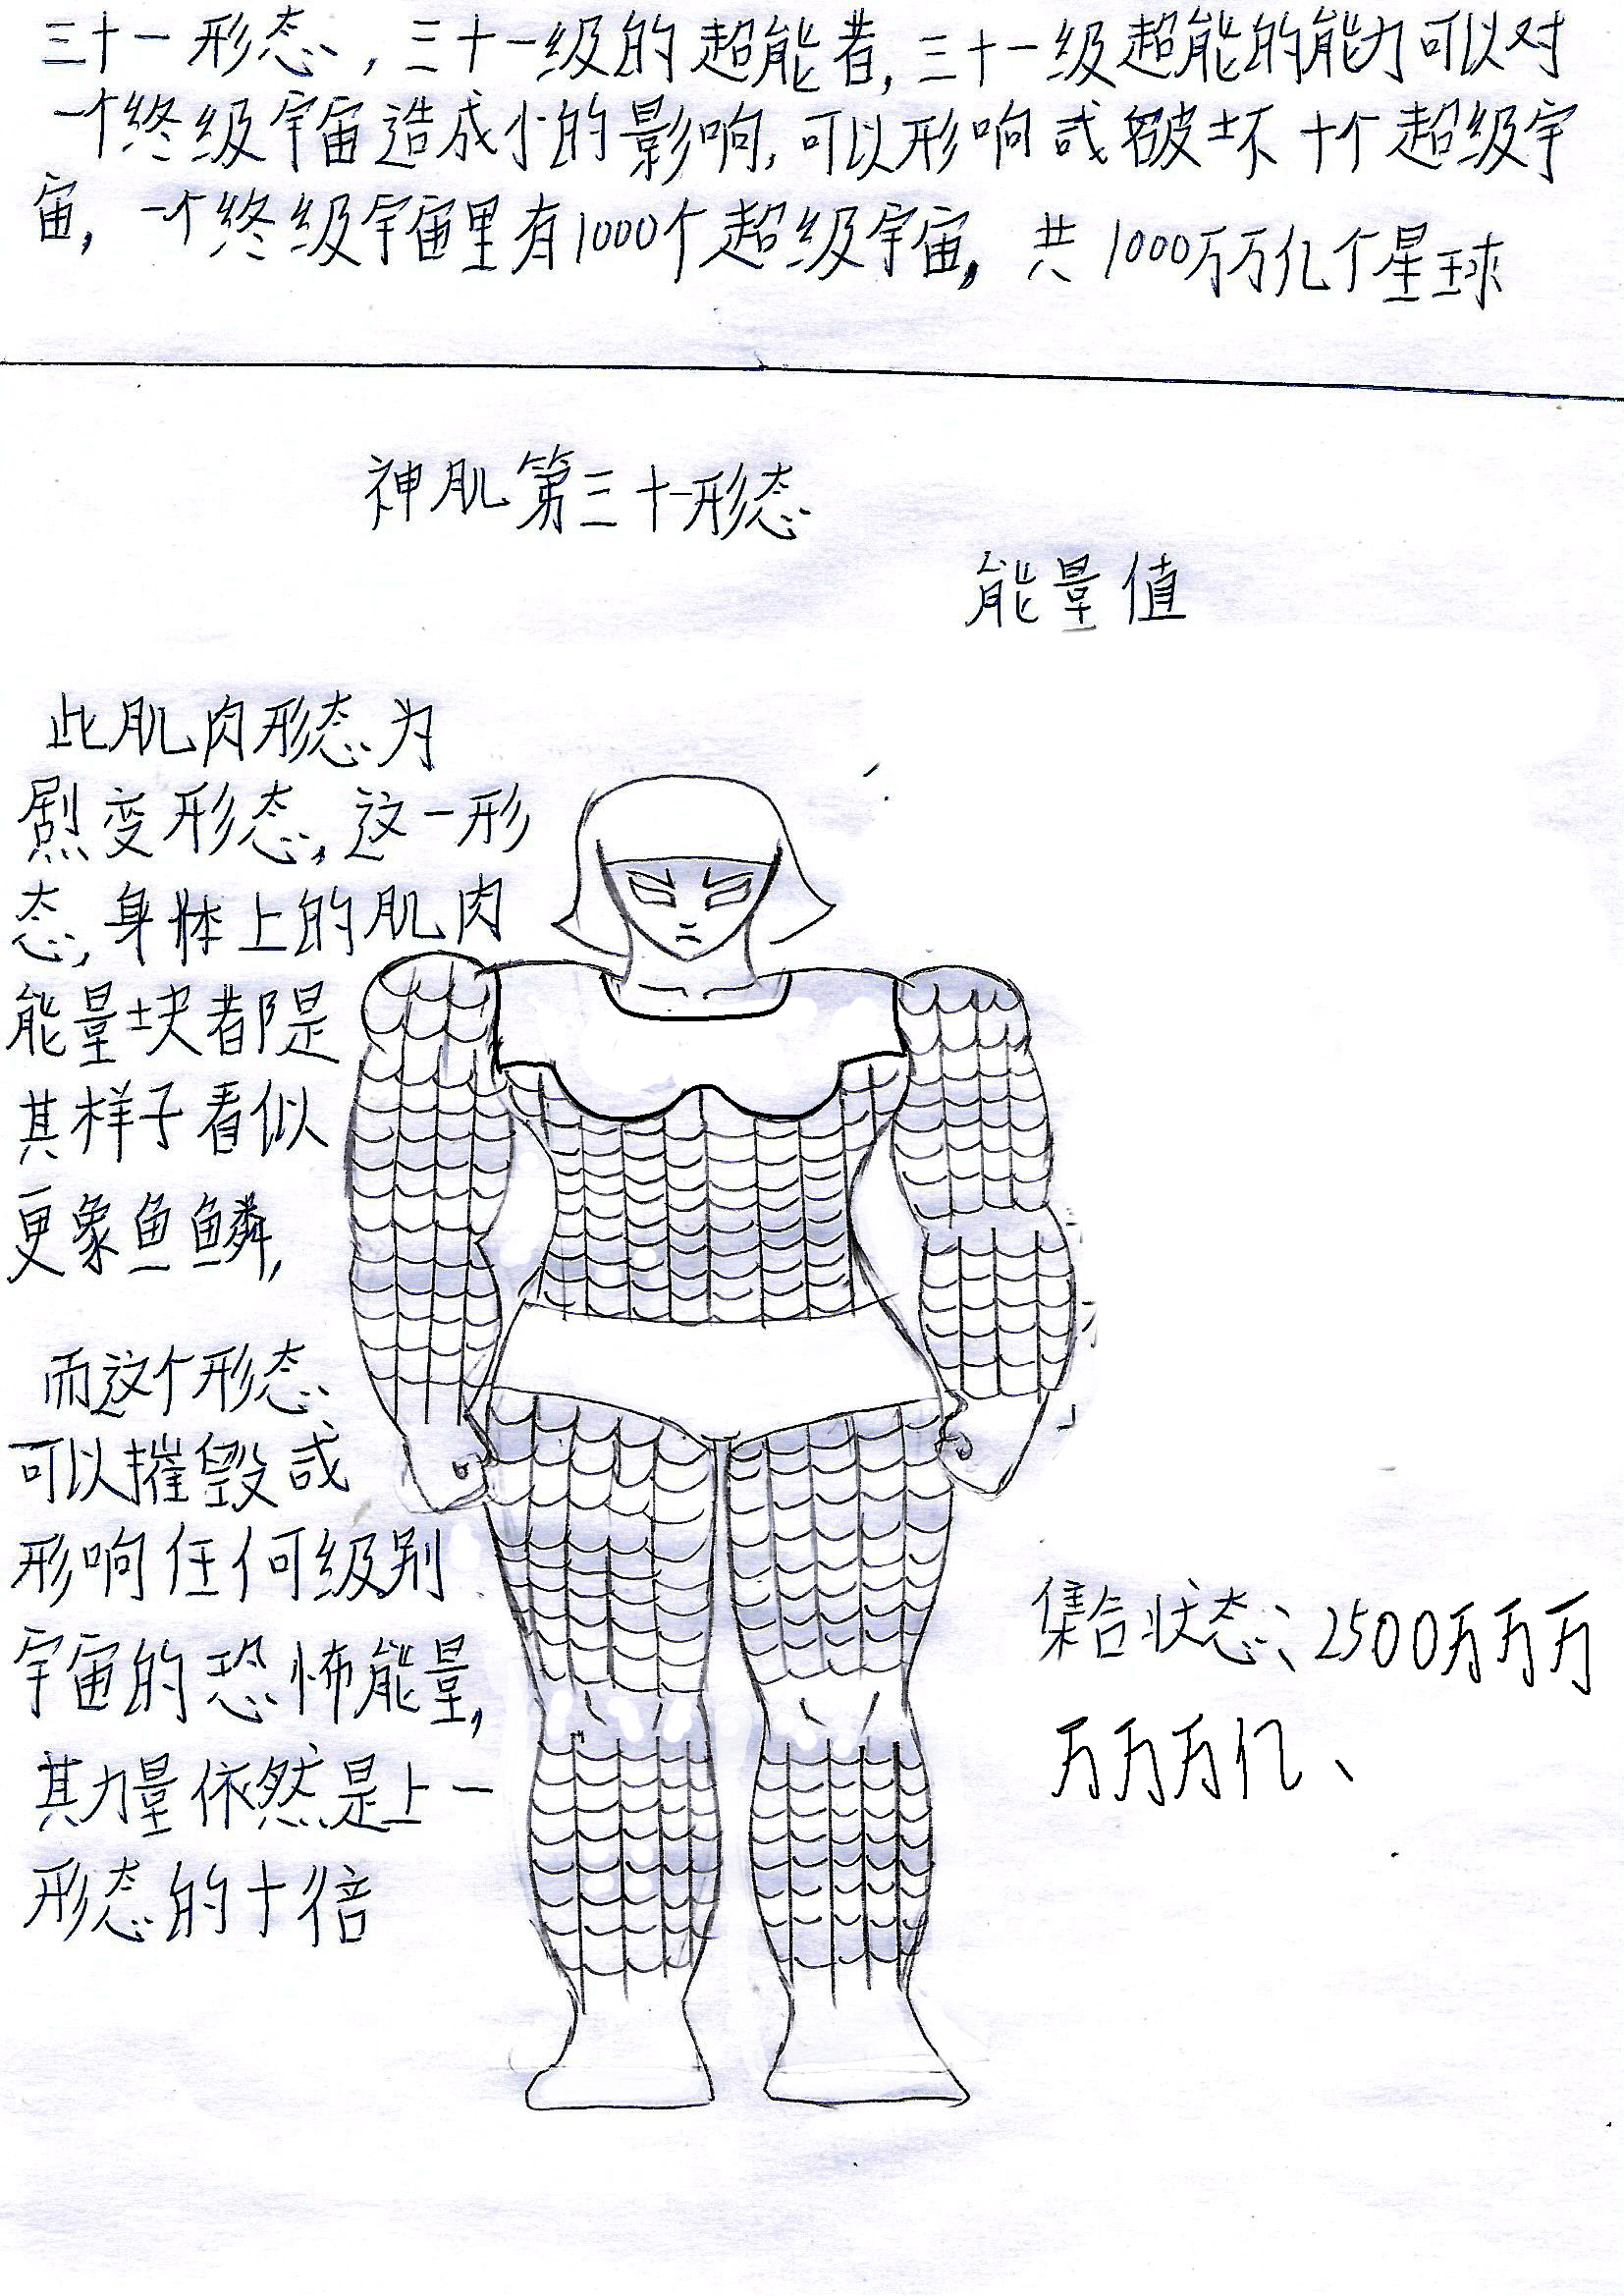 三十一形态、,三十一级的超能者,三十一级超能的能力可以对
一个终级宇宙造成小的影响,可以形响或破坏十个超级宇
宙,一个终级宇宙里有1000个超级宇宙,共1000万万亿个星球
神肌第三十一形态
能量值
此肌肉形态为
剧变形态,这一形
态,身体上的肌肉
能量块都是
其样子看似
更象鱼鳞,
而这个形态
可以摧毁或
形响任何级别
宇宙的恐怖能量,
其力量依然是上一
形态的十倍
集合状态、2500万万万
万万万亿、